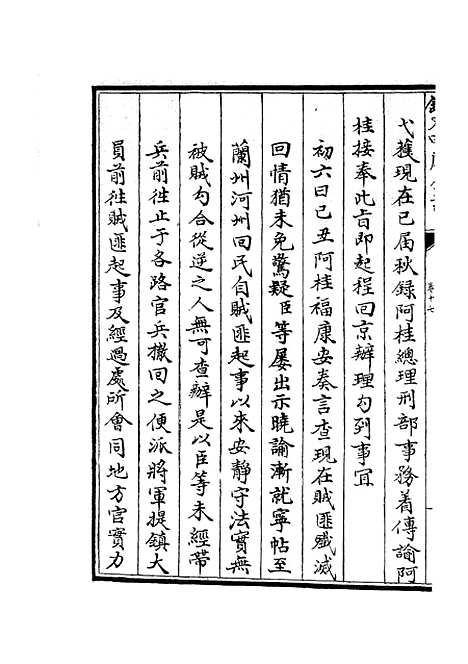 弋獲現在已届秋録阿桂總理刑部事務着傳諭阿
桂接奉此旨即起程回京辦理勾到事宜
初六日己丑阿桂福康安奏言查現在賊匪殲滅
回情猶未免驚疑臣等屢出示曉諭漸就寧帖至
蘭州河州回民自賊匪起事以來安静守法實無
被賊勾合從逆之人無可查辦是以臣等未經帶
兵前徃止于各路官兵撤回之便派將軍提鎮大
員前徃賊匪起事及經過處所會同地方官實力
卷十七